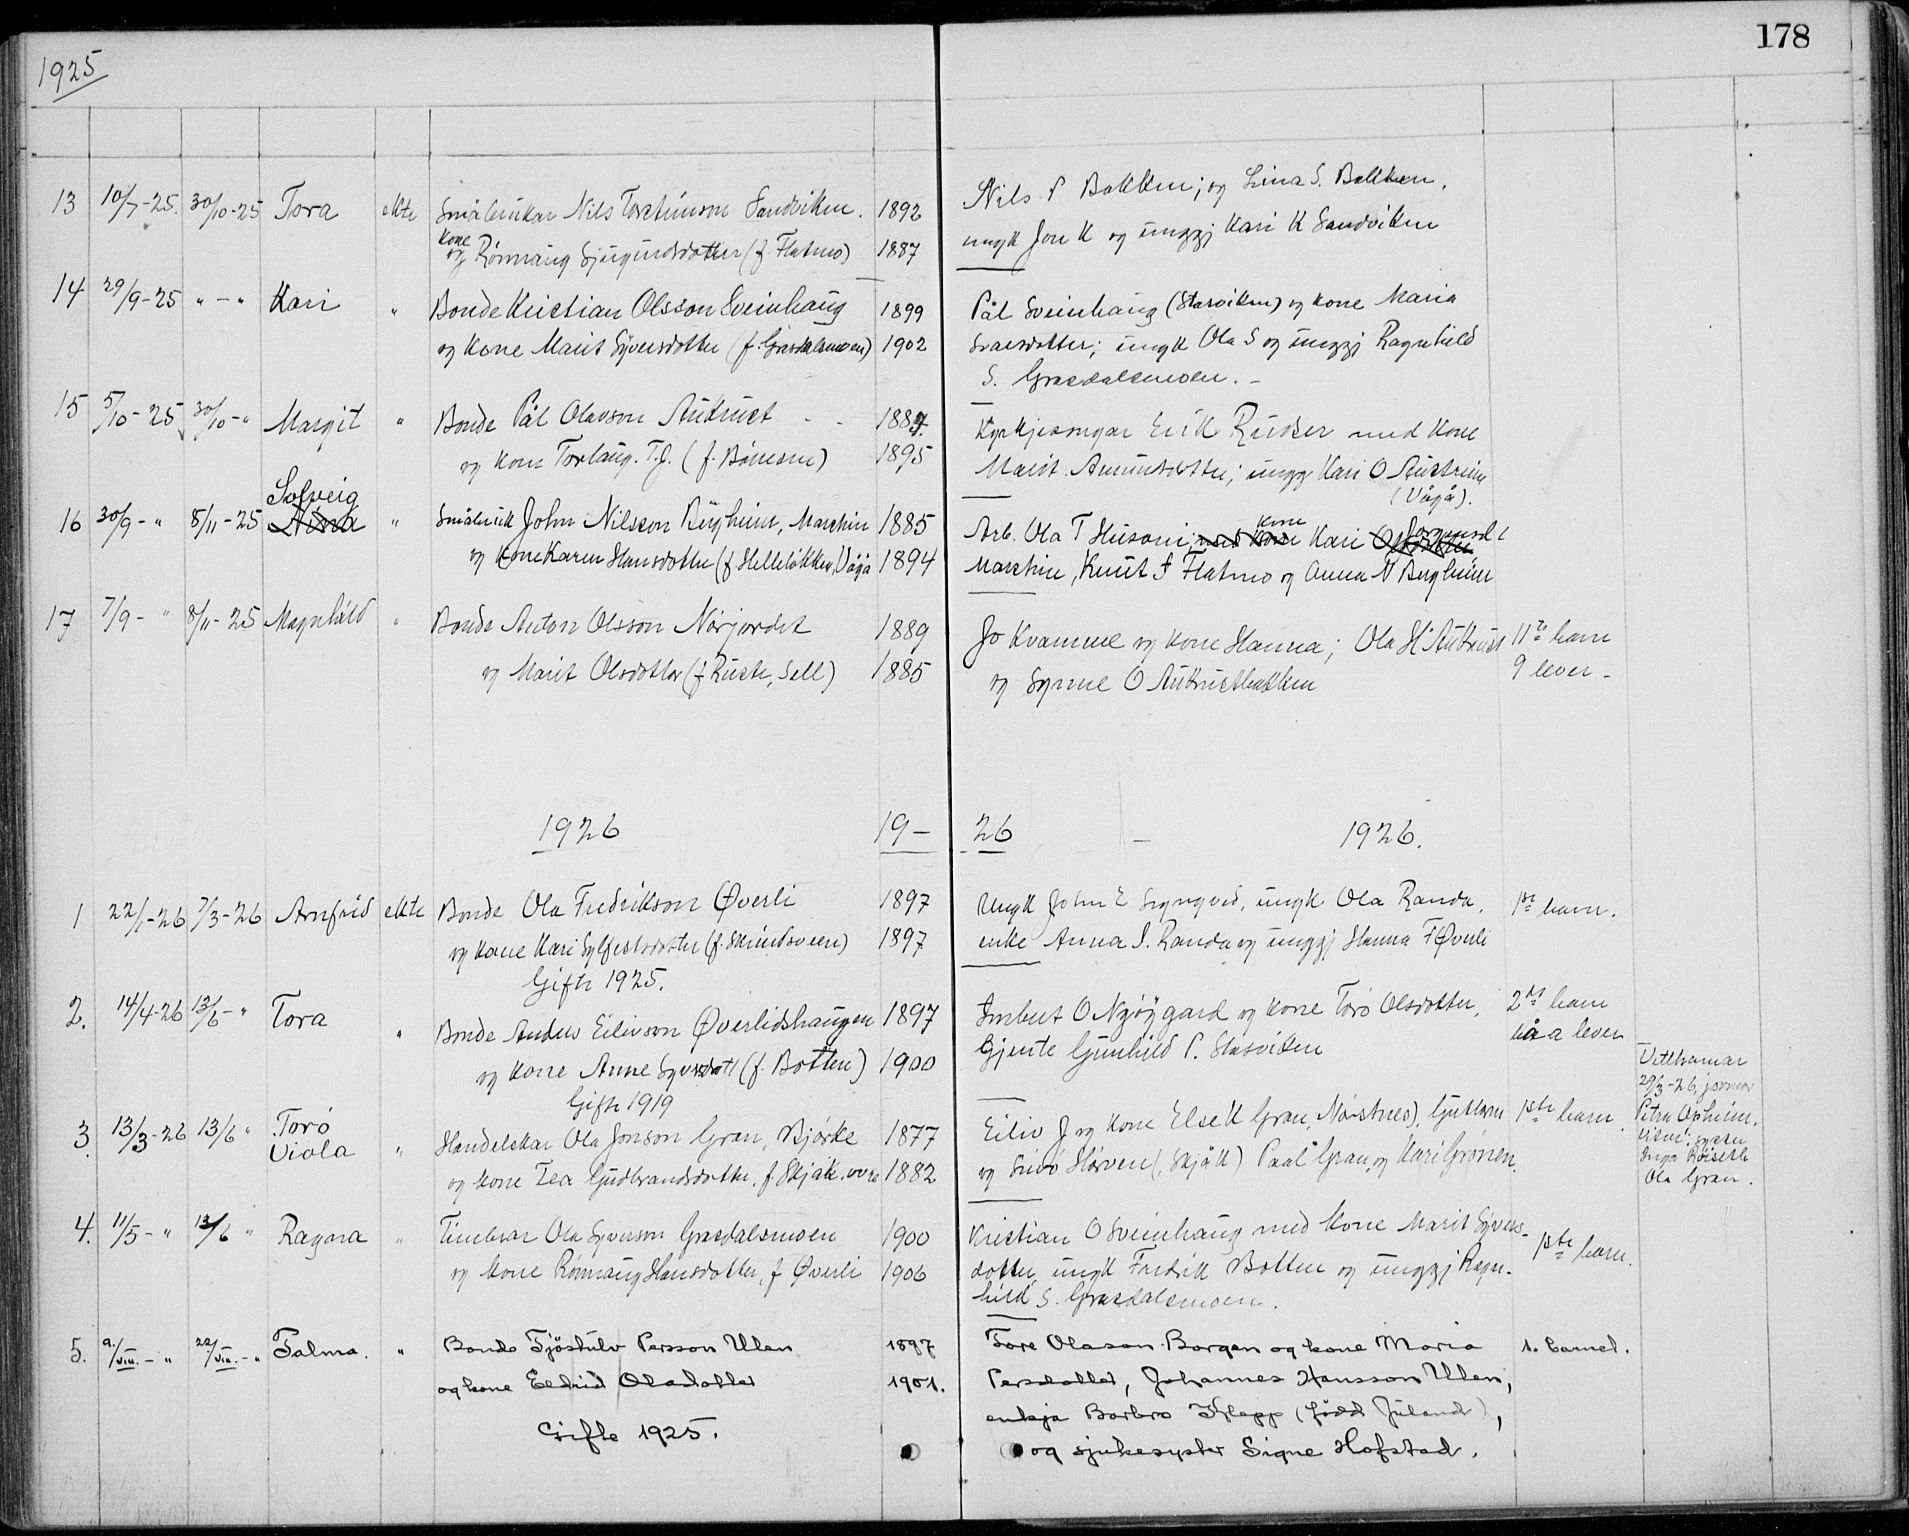 178
1925
13 10/7-25. 30/10-25 Tora ekte Småbrukar Nils Torsteinson Sandviken. 1892 Nils P Bakken; og Lina S. Bakken,
kone
og Rønnaug Sjugurdsdotter (f. Flatmo) 1887 ungk Jon K og unggj Kari K Sandviken
14 29/9-25 " - " Kari " Bonde Kristian Olsson Sveinhaug 1899 Pål Sveinhaug (Stasviken) og kone Maria
og kone Marit Syversdotter (f. Grasdalsmoen) 1902 ungk Ola S og unggj Ragnhild
S. Grasdalsmoen. -
15 5/10-25 30/10-" Margit " Bonde Pål Olavson Aukrust - - Kyrkjesongar Erik Rudser med kone
og kone Torlaug. T.d. 1895 Marit Amundsdotter; ungg Kari O
(Vågå).
Solveig
16 30/9-" 8/11-25 " Småbruk John Nilsson Bergheim, Marstein 1885 Arb. Ola T Husom; med kone kone Kari
og kone Karen Hansdotter (f. Helleløkken, Vågå 1894 Marstein, Knut J Flatmo og Anna N Bergheim
17 7/9- " 8/11-25 Magnhild " Bonde Anton Olsson Nørjordet 1889 Jo Kvamme og kone Hanna; Ola H Aukrust 11te barn
og Marit Olsdotter (f Ruste, Sell) 1885 og Synne O Aukrustbakken 9 lever -
1926 19- 26 - 1926.
1 22/1-26 7/3-26 Arnfrid ekte Bonde Ola Fredrikson Øverli 1897 Ungk John E Sygnved, ungk Ola Randa, 1ste barn.
og kone Kari Sylfestsdotter 1897 enke Anna I. Randa og unggj Hanna F Øverli
Gifte 1925.
2. 14/4-26 13/6-" Tora " Bonde Anders Eilivson Øverlidshaugen 1897 Imbert O Nzöygard og kone Torö Olsdotter, 2det barn
og kone Anne Syversdott (f. Botten) 1900 Gjente Gunhild P. Stasviken båa lever
Gifte 1919
3. 13/3-26 13/6 " Torö " Handelskar Ola Jonson Gran, Bjørke 1877 Eiliv J og kone Else K Gran, 1ste barn.
Viola og kone Tea Gudbrandsdotter, f. Skjåk. 1882 og Skjåk) Paal Gran, og Kari Grønen.
29/3-26, jormor
Ola Gran.
4. 11/5-" 13/6 " Ragna " Timbrar Ola Syverson Grasdalsmoen 1900 Kristian O Sveinhaug med kone Marit Syvers-
og kone Rønnaug Hansdotter, f Øverli 1906 dotter, ungk Fredrik Botten og unggj Ragn- 1ste barn.
hild S. Grasdalsmoen.
5. 9/VIII.-" 22/VIII.-" Talma. " Bonde Tjöstulv Persson Ulen 1897 Tore Olason Borgen og kone Maria 1. barnet.
og kone Eldrid Olasdotter 1901. Persdotter, Johannes Hansson Ulen,
enkja Barbro Klepp (född Juland),
Gifte 1925. og sjukesyster Signe Hofstad.